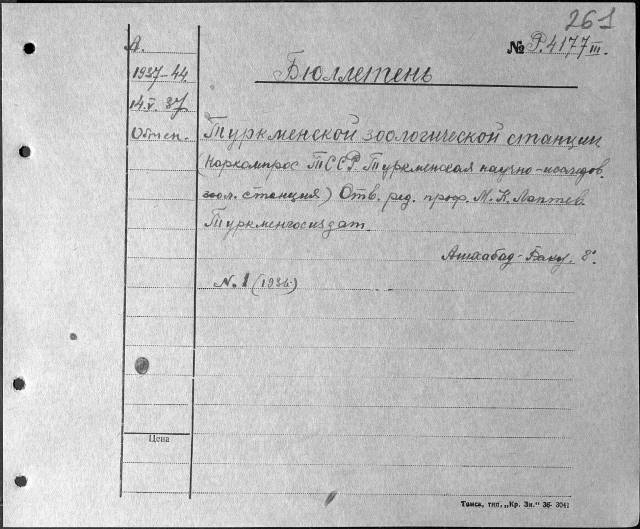 261
№ Р.4177 III.
А.
1937-44
Бюллетень
14.V.37
Обмен. Туркменской зоологической станции
(Наркомпрос ТССР. Туркменская научно-исслед.
зоол. станция) Отв. ред. проф. М. К. Лаптев.
Туркменгосиздат.
Ашхабад-Баку. 8°.
№. 1 (1936)
Цена
Томск, тип. „Кр. Зн." 36- 3041